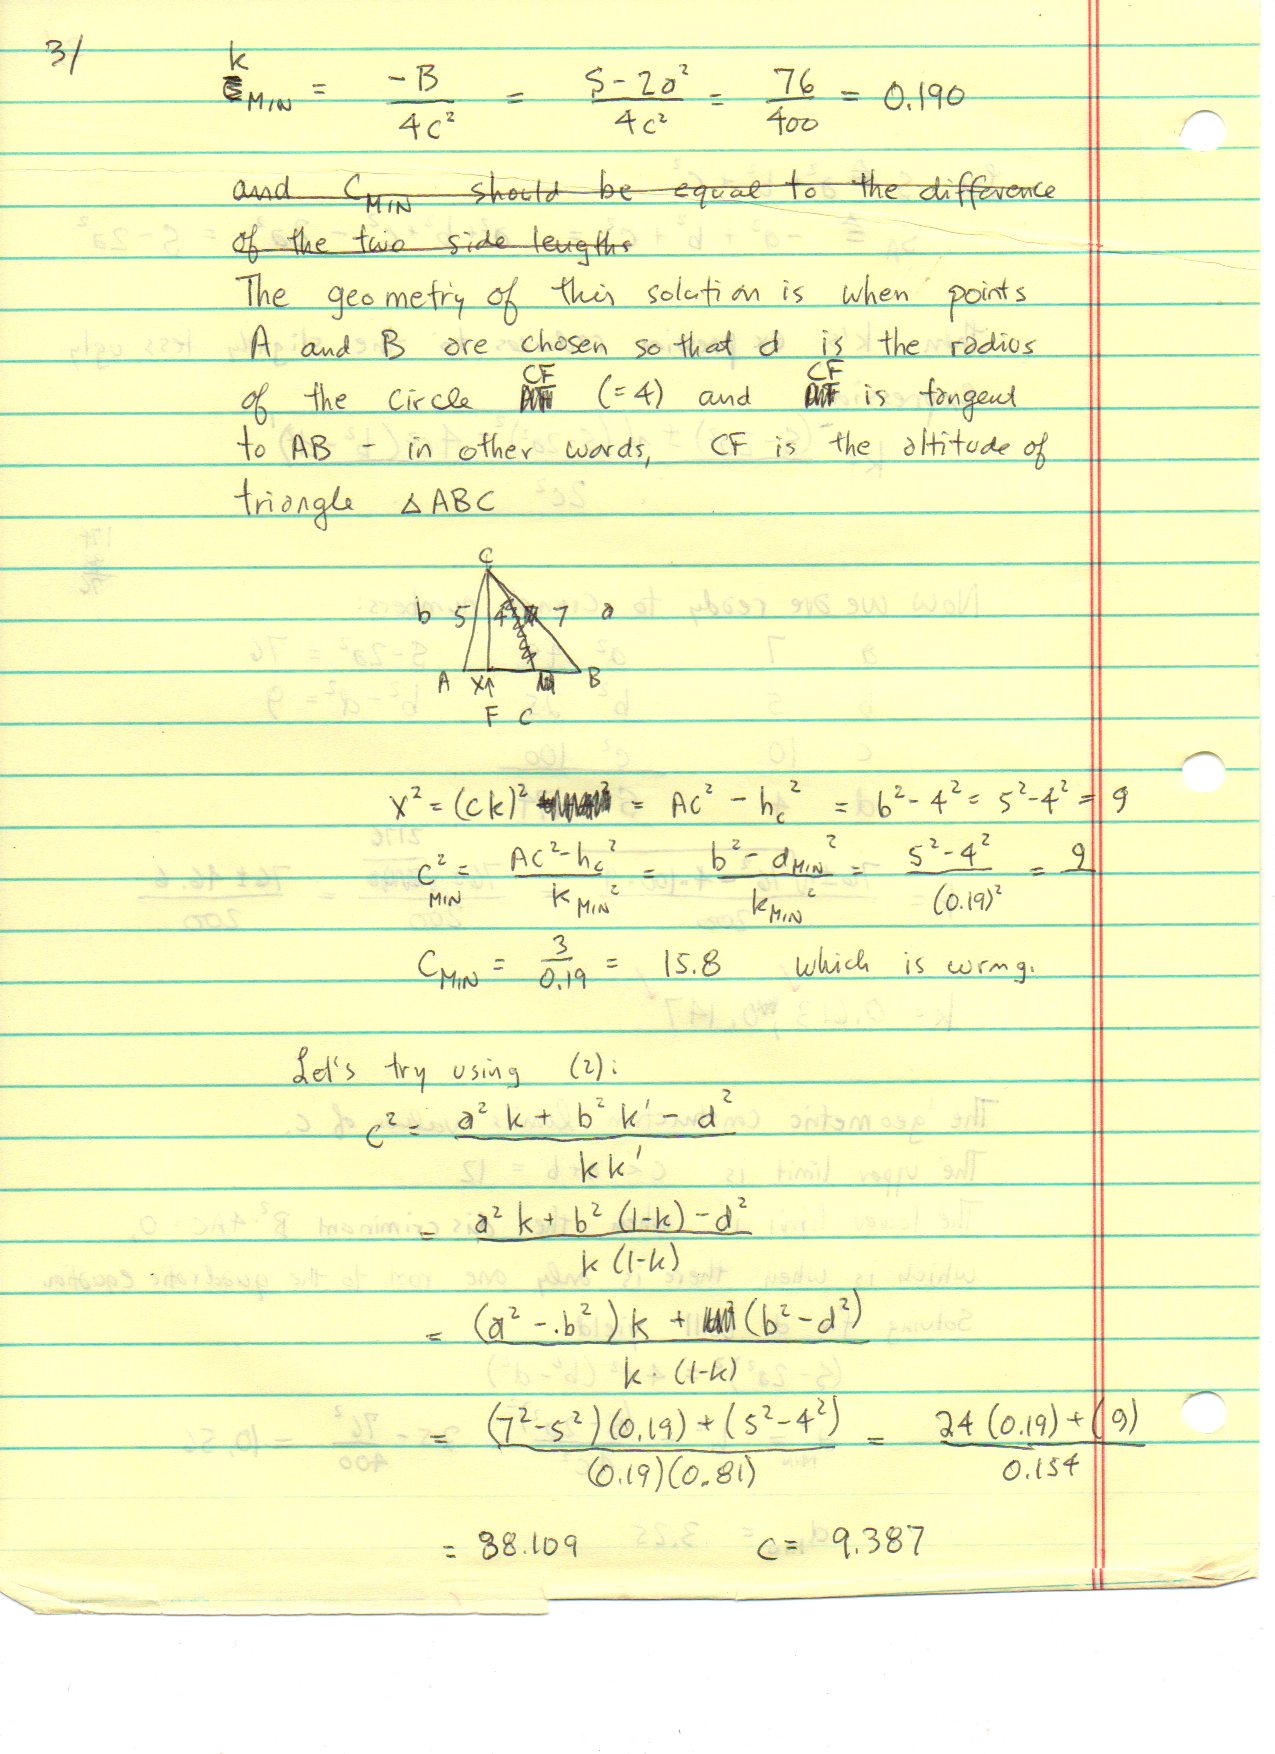 3/
k
MIN = -B / 4c² = S - 2a² / 4c² = 76 / 400 = 0.190
and C MIN should be equal to the difference
of the two side lengths
The geometry of this solution is when points
A and B are chosen so that d is the radius
of the circle CF (=4) and CF is tangent
to AB - in other words, CF is the altitude of
triangle △ABC
C
b 5 4 7 a
A X↑ B
F C
X² = (ck)² = AC² - h_c² = b² - 4² = 5² - 4² = 9
C²MIN = AC² - h_c² / k MIN² = b² - d MIN² / k MIN² = 5² - 4² / (0.19)² = 9
C MIN = 3 / 0.19 = 15.8 which is wrong.
Let's try using (2):
c² = a² k + b² k' - d² / k k'
= a² k + b² (1-k) - d² / k (1-k)
= (a² - b²) k + (b² - d²) / k (1-k)
= (7² - 5²)(0.19) + (5² - 4²) / (0.19)(0.81) = 24 (0.19) + (9) / 0.154
= 88.109 c = 9.387